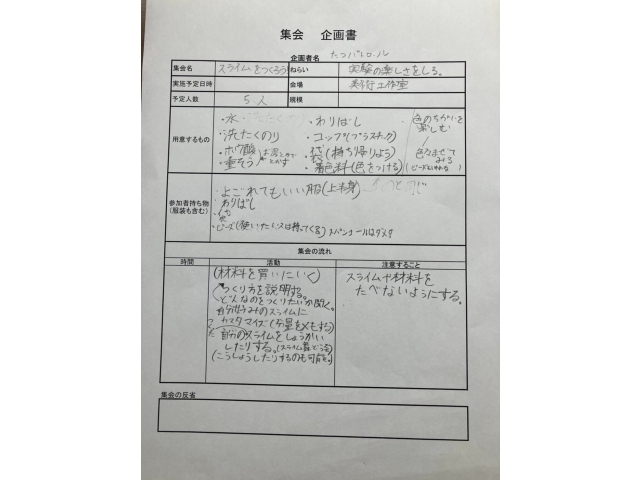 集会 企画書
企画者名
集会名 スライムをつくろう ねらい 実験の楽しさをしる。
実施予定日時 会場 美術工作室
予定人数 5人 規模
用意するもの
・水
・洗たくのり
・ホウ酸
・重そう
・わりばし
・コップ(プラスチック)
・袋(持ち帰りよう)
・着色料(色をつける)
色のちがいを
楽しむ
色々まぜて
みる
参加者持ち物
(服装も含む)
・よごれてもいい服(上半身)
・わりばし
集会の流れ
時間 活動 注意すること
(材料を買いにいく)
つくり方を説明する。
どんなのをつくりたいか聞く。
自分好みのスライムに
カスタマイズ(分量を〆もする)
自分のスライムをしょうかい
したりする。
(こうしょうしたりするのも可能。)
スライムや材料を
たべないようにする。
集会の反省